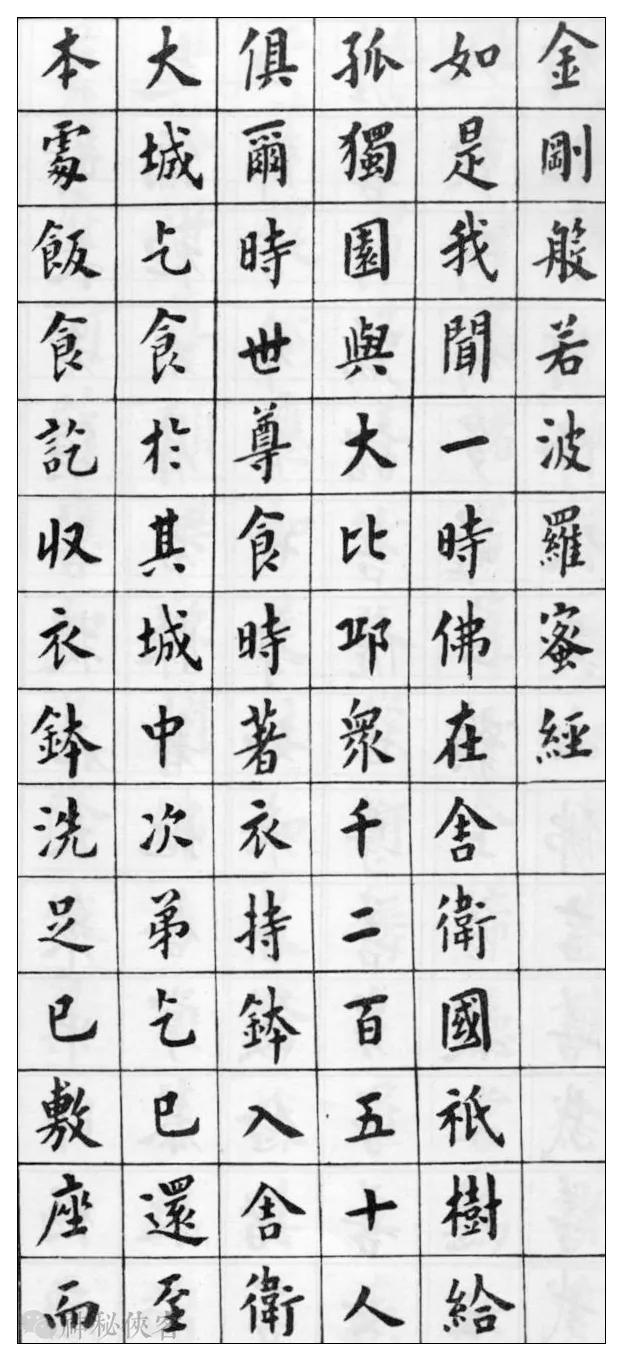 金剛般若波羅蜜經
如是我聞一時佛在舍衛國祇樹給
孤獨園與大比邱衆千二百五十人
俱爾時世尊食時著衣持鉢入舍衛
大城乞食於其城中次第乞已還至
本處飯食訖收衣鉢洗足已敷座而
神秘俠客